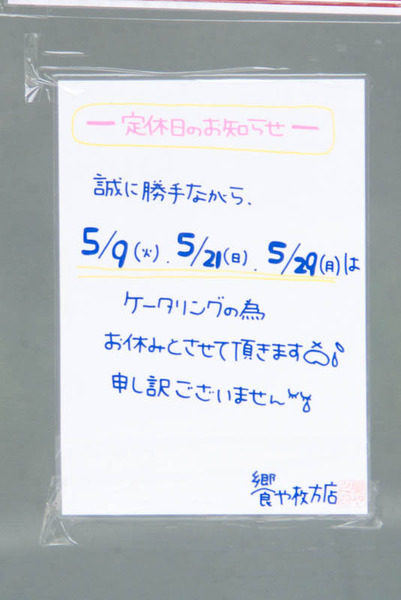 ー定休日のお知らせー
誠に勝手ながら、
5/9(火)、5/21(日)、5/29(月)は
ケータリングの為
お休みとさせて頂きます
申し訳ございません
饗や枚方店